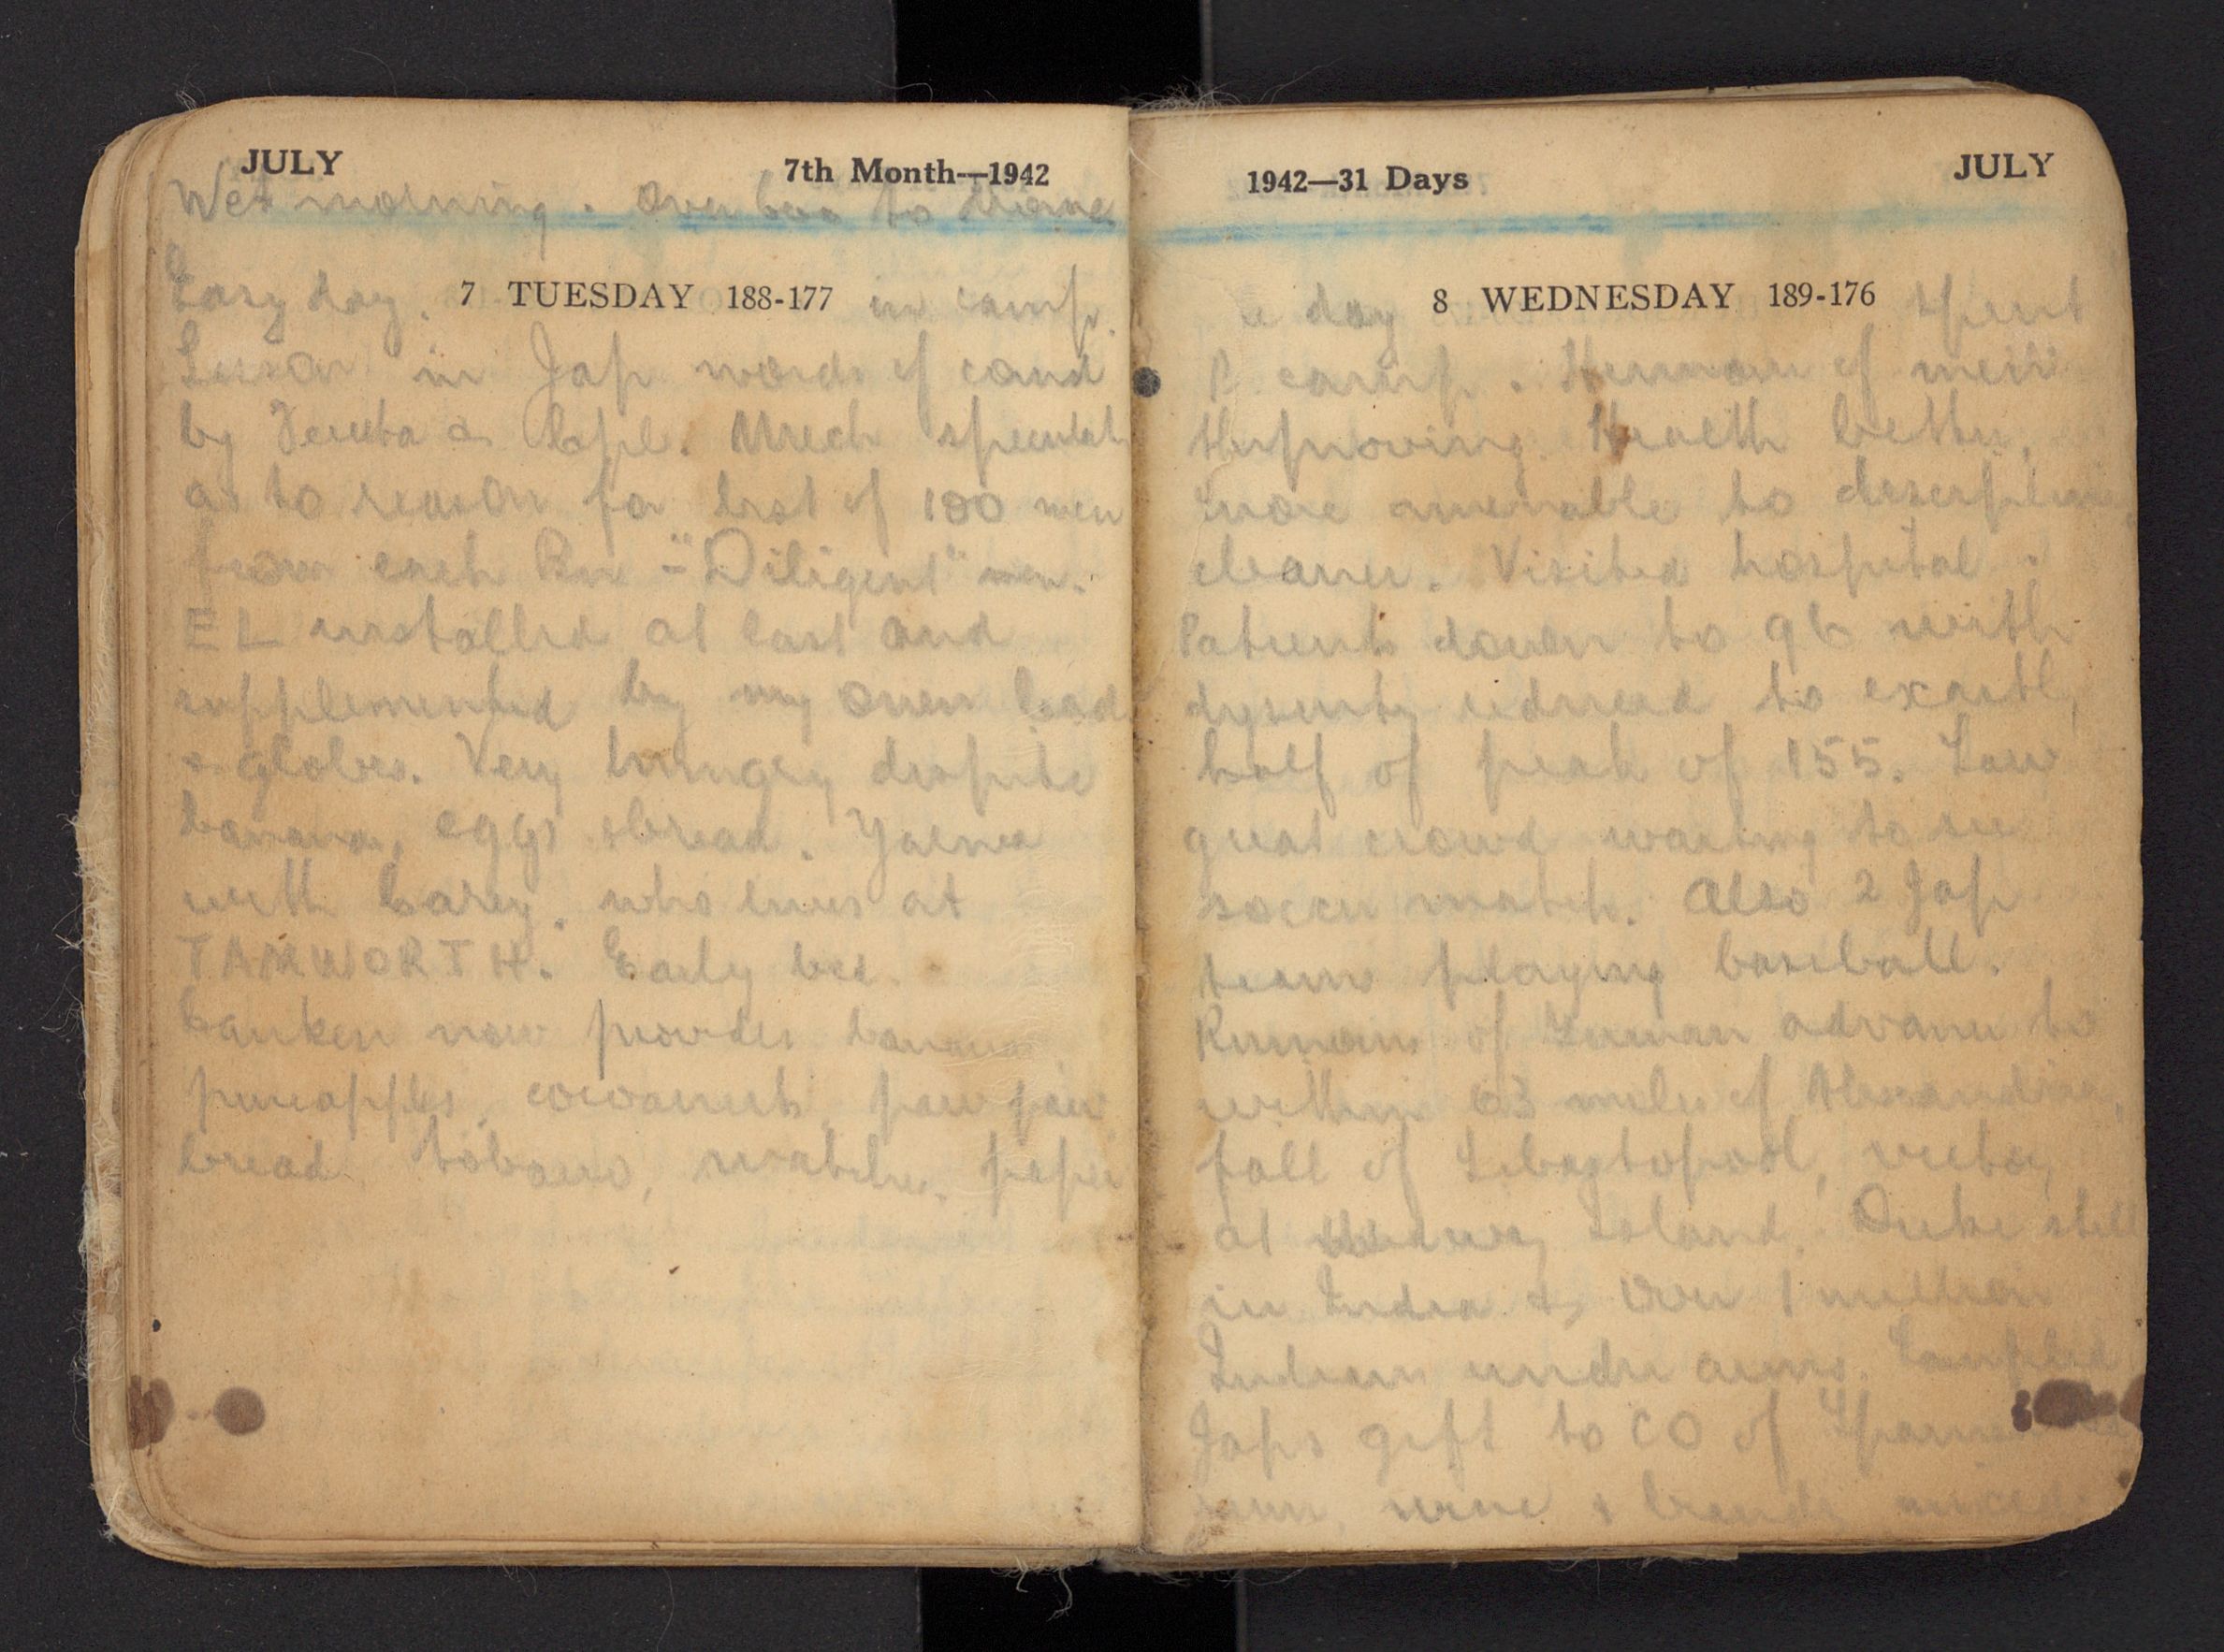 JULY 7th Month—1942
Wet morning. Over to
7 TUESDAY 188-177
Easy day. in camp.
Lesson in Jap words of comd
by & Cpl. Much
as to reason for list of 100 men
from each Bn - "Diligent" men.
EL installed at last and
supplemented by my own lead
& globes. Very hungry despite
banana, eggs & bread.
with Carey, who lives at
TAMWORTH. Early bed.
now provides bananas
pineapples, cocoanuts, paw paw
bread tobacco, matches, paper
1942—31 Days JULY
8 WEDNESDAY 189-176
day spent
camp. of men
improving. Health better,
more amenable to
cleaner. Visited hospital.
Patients down to 96 with
dysentry reduced to exactly
half of peak of 155. Saw
great crowd waiting to see
soccer match. Also 2 Jap
teams playing baseball.
Rumours of German advance to
within 63 miles of Alexandria,
fall of victory
at Midway Island, Duke still
in India & over 1 million
Indians under arms. Sampled
Japs gift to CO of
wine & mixed